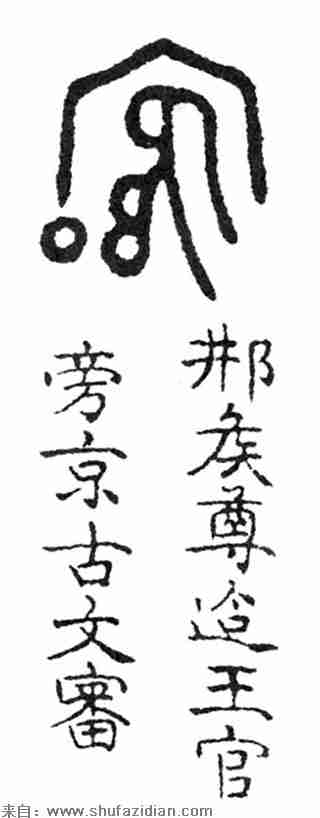 邢矦尊迨王官
旁京古文審
来自：www.shufazidian.com